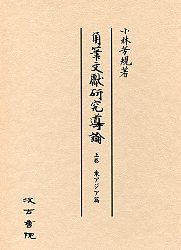 小林芳規著
角筆文献研究導論
上巻 東アジア篇
汲古書院